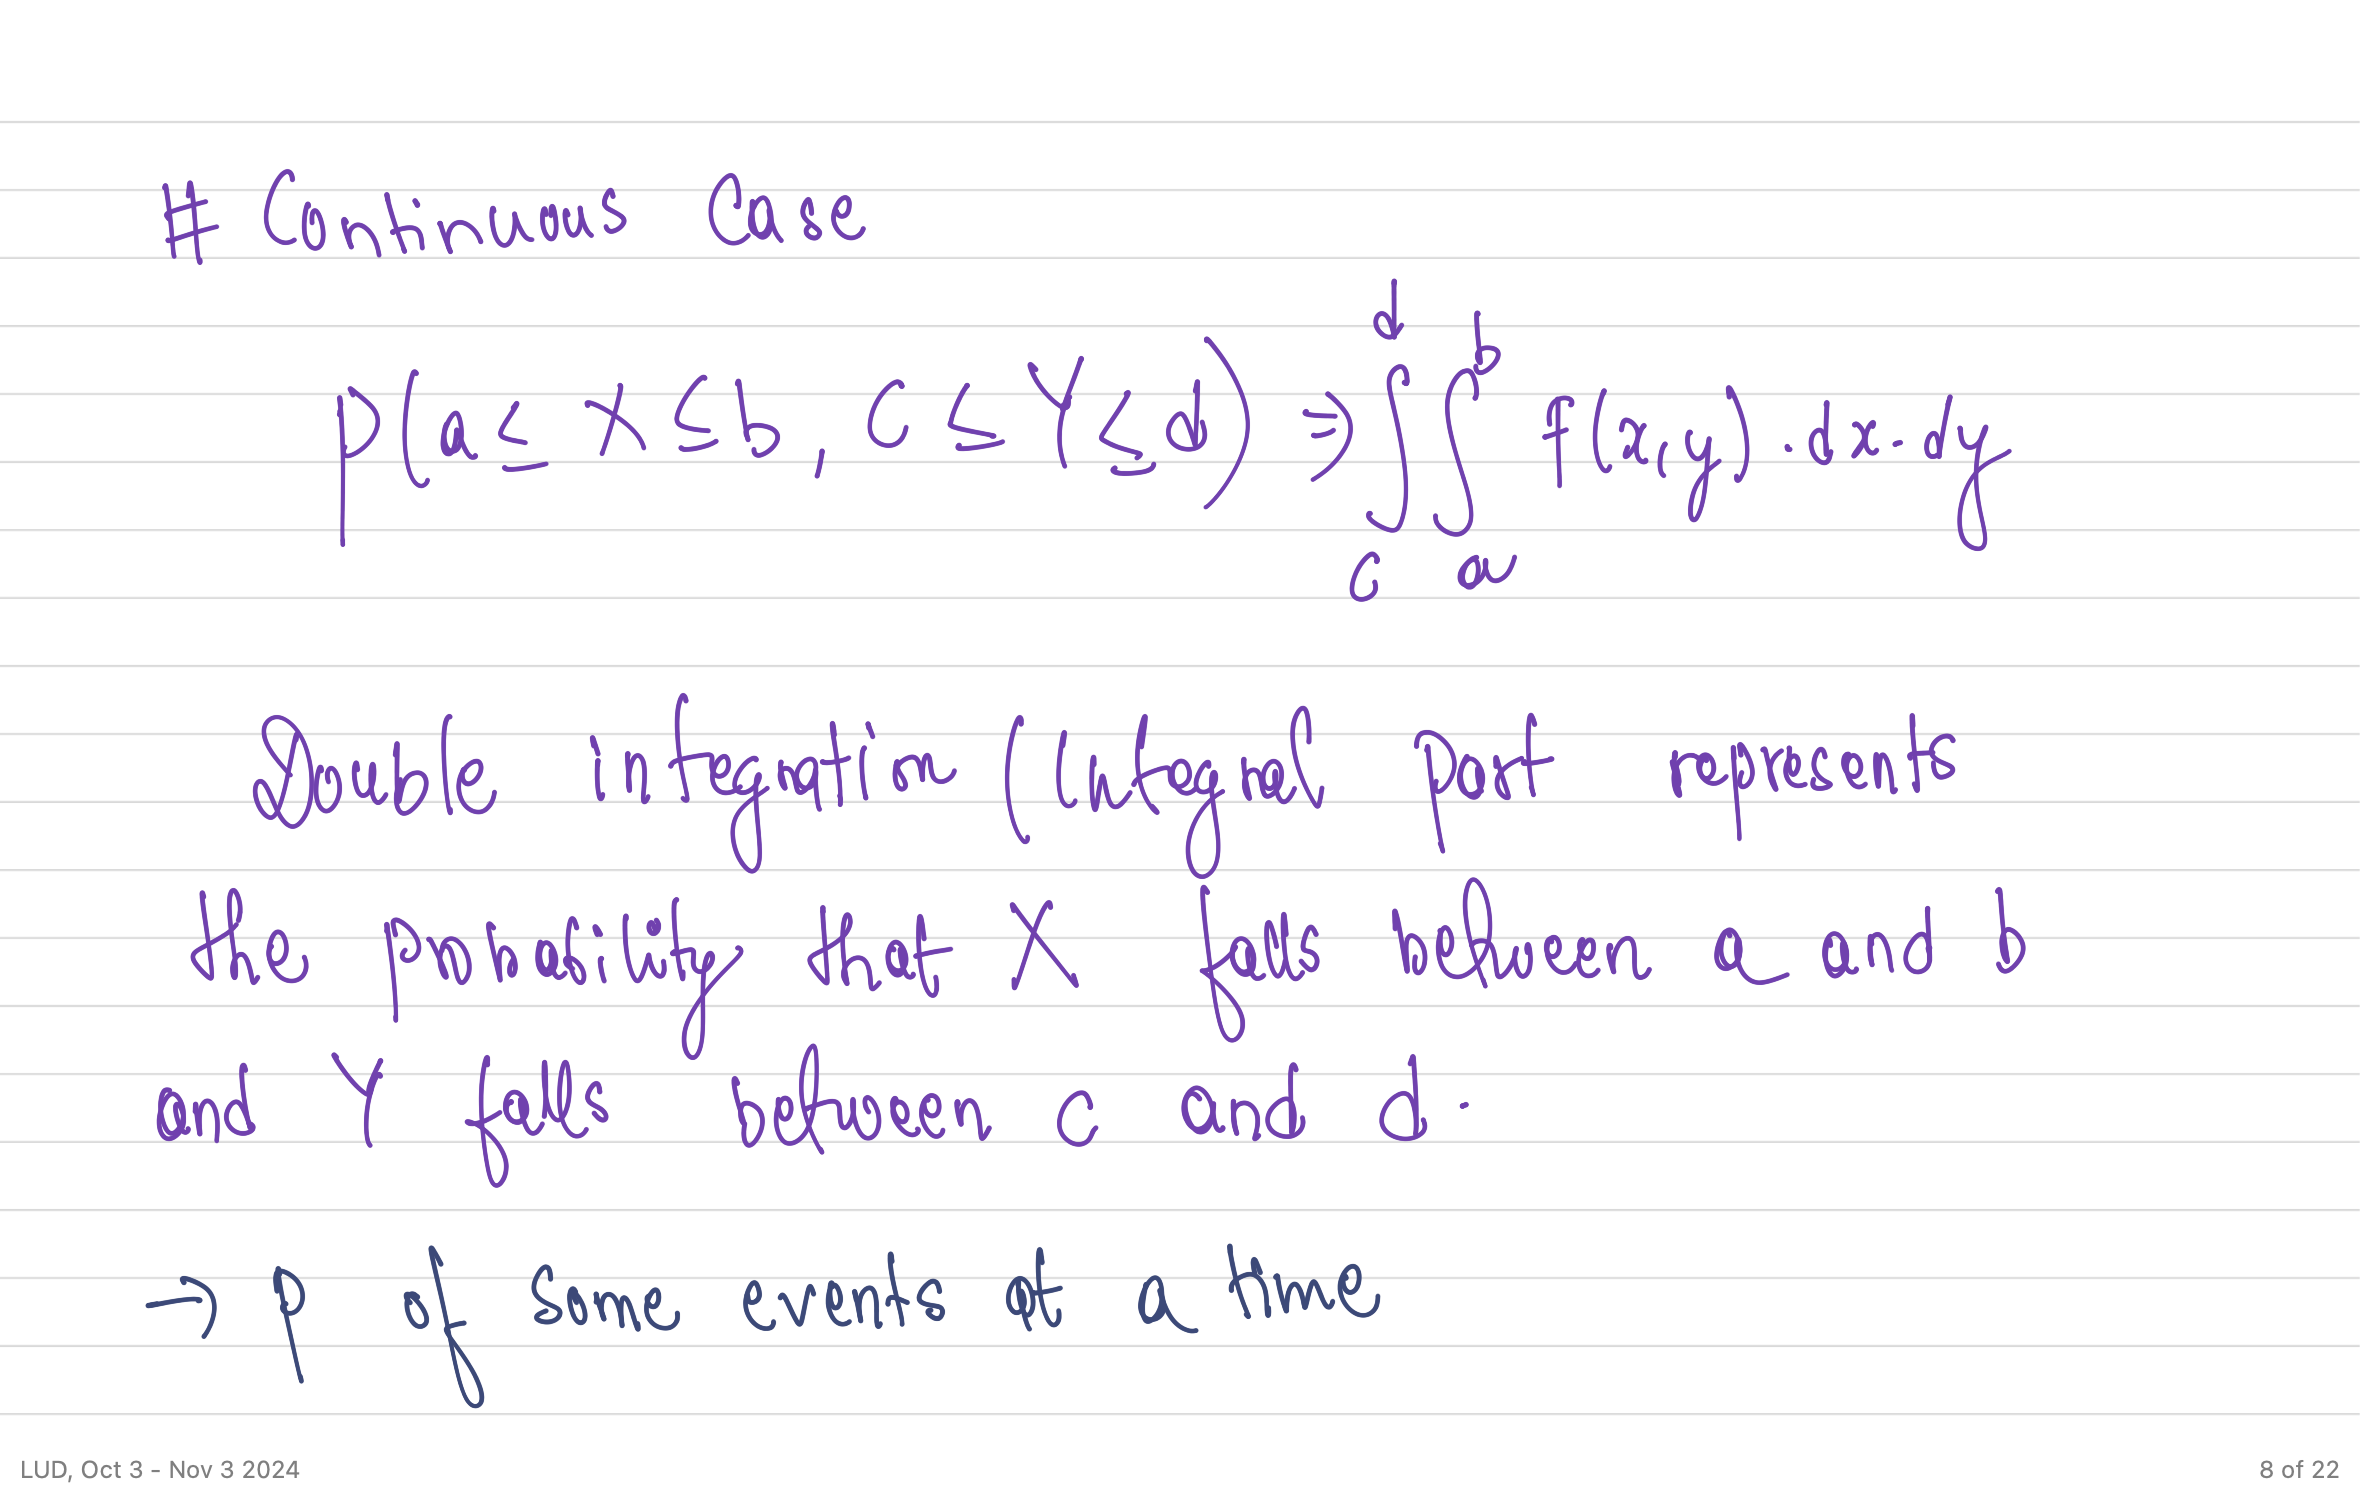 # Continuous Case
P(a ≤ X ≤ b, c ≤ Y ≤ d) ⇒ ∫_c^d ∫_a^b f(x,y) . dx . dy
Double integration (Integral part represents
the probability that X falls between a and b
and Y falls between c and d.
→ P of same events at a time
LUD, Oct 3 - Nov 3 2024
8 of 22